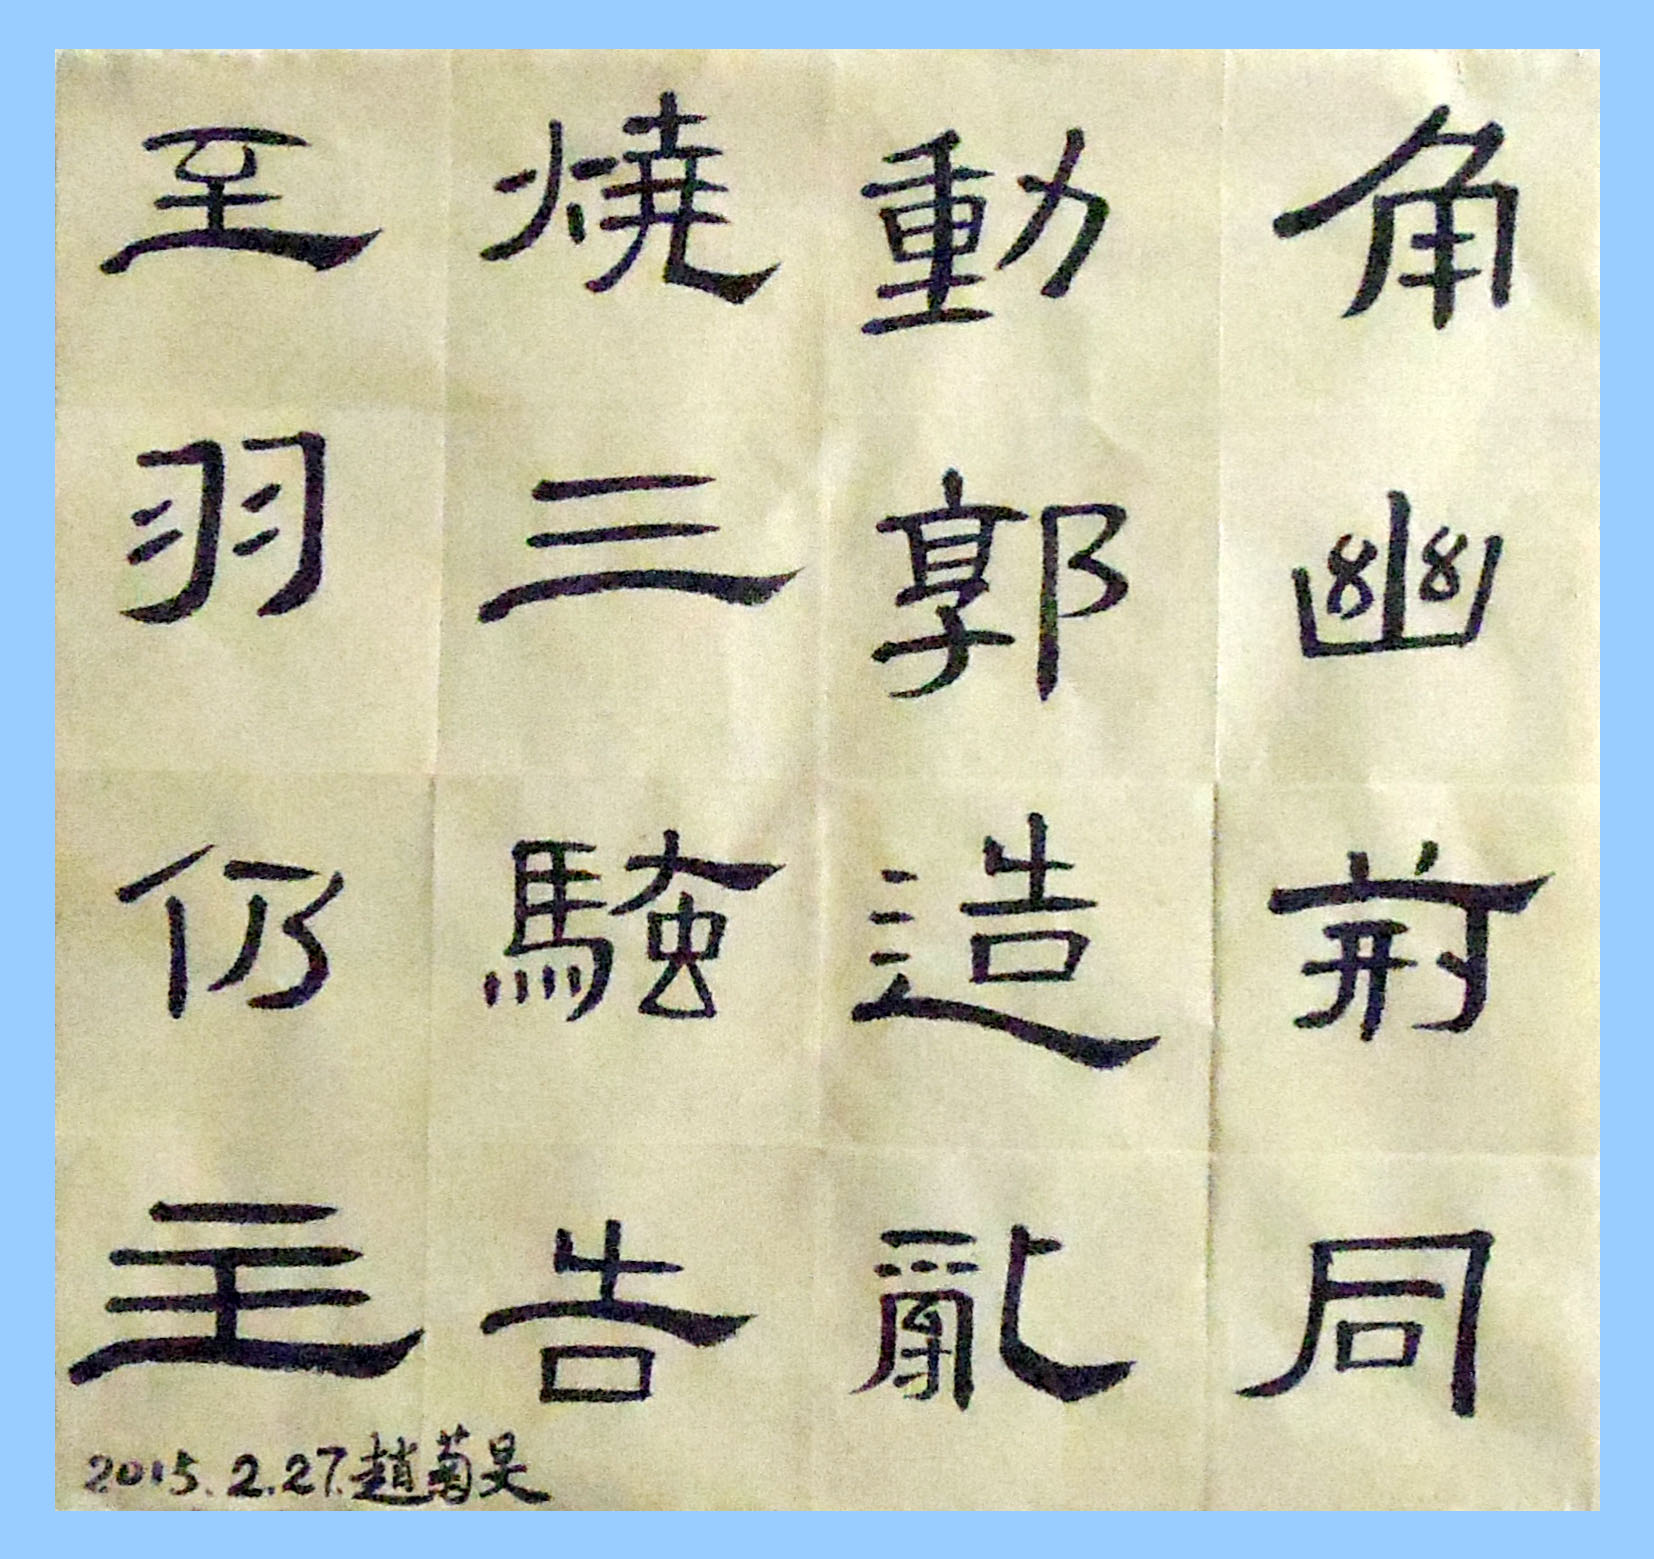 角幽荊同
動郭造亂
燒三騷告
至羽仍主
2015.2.27.趙菊旻